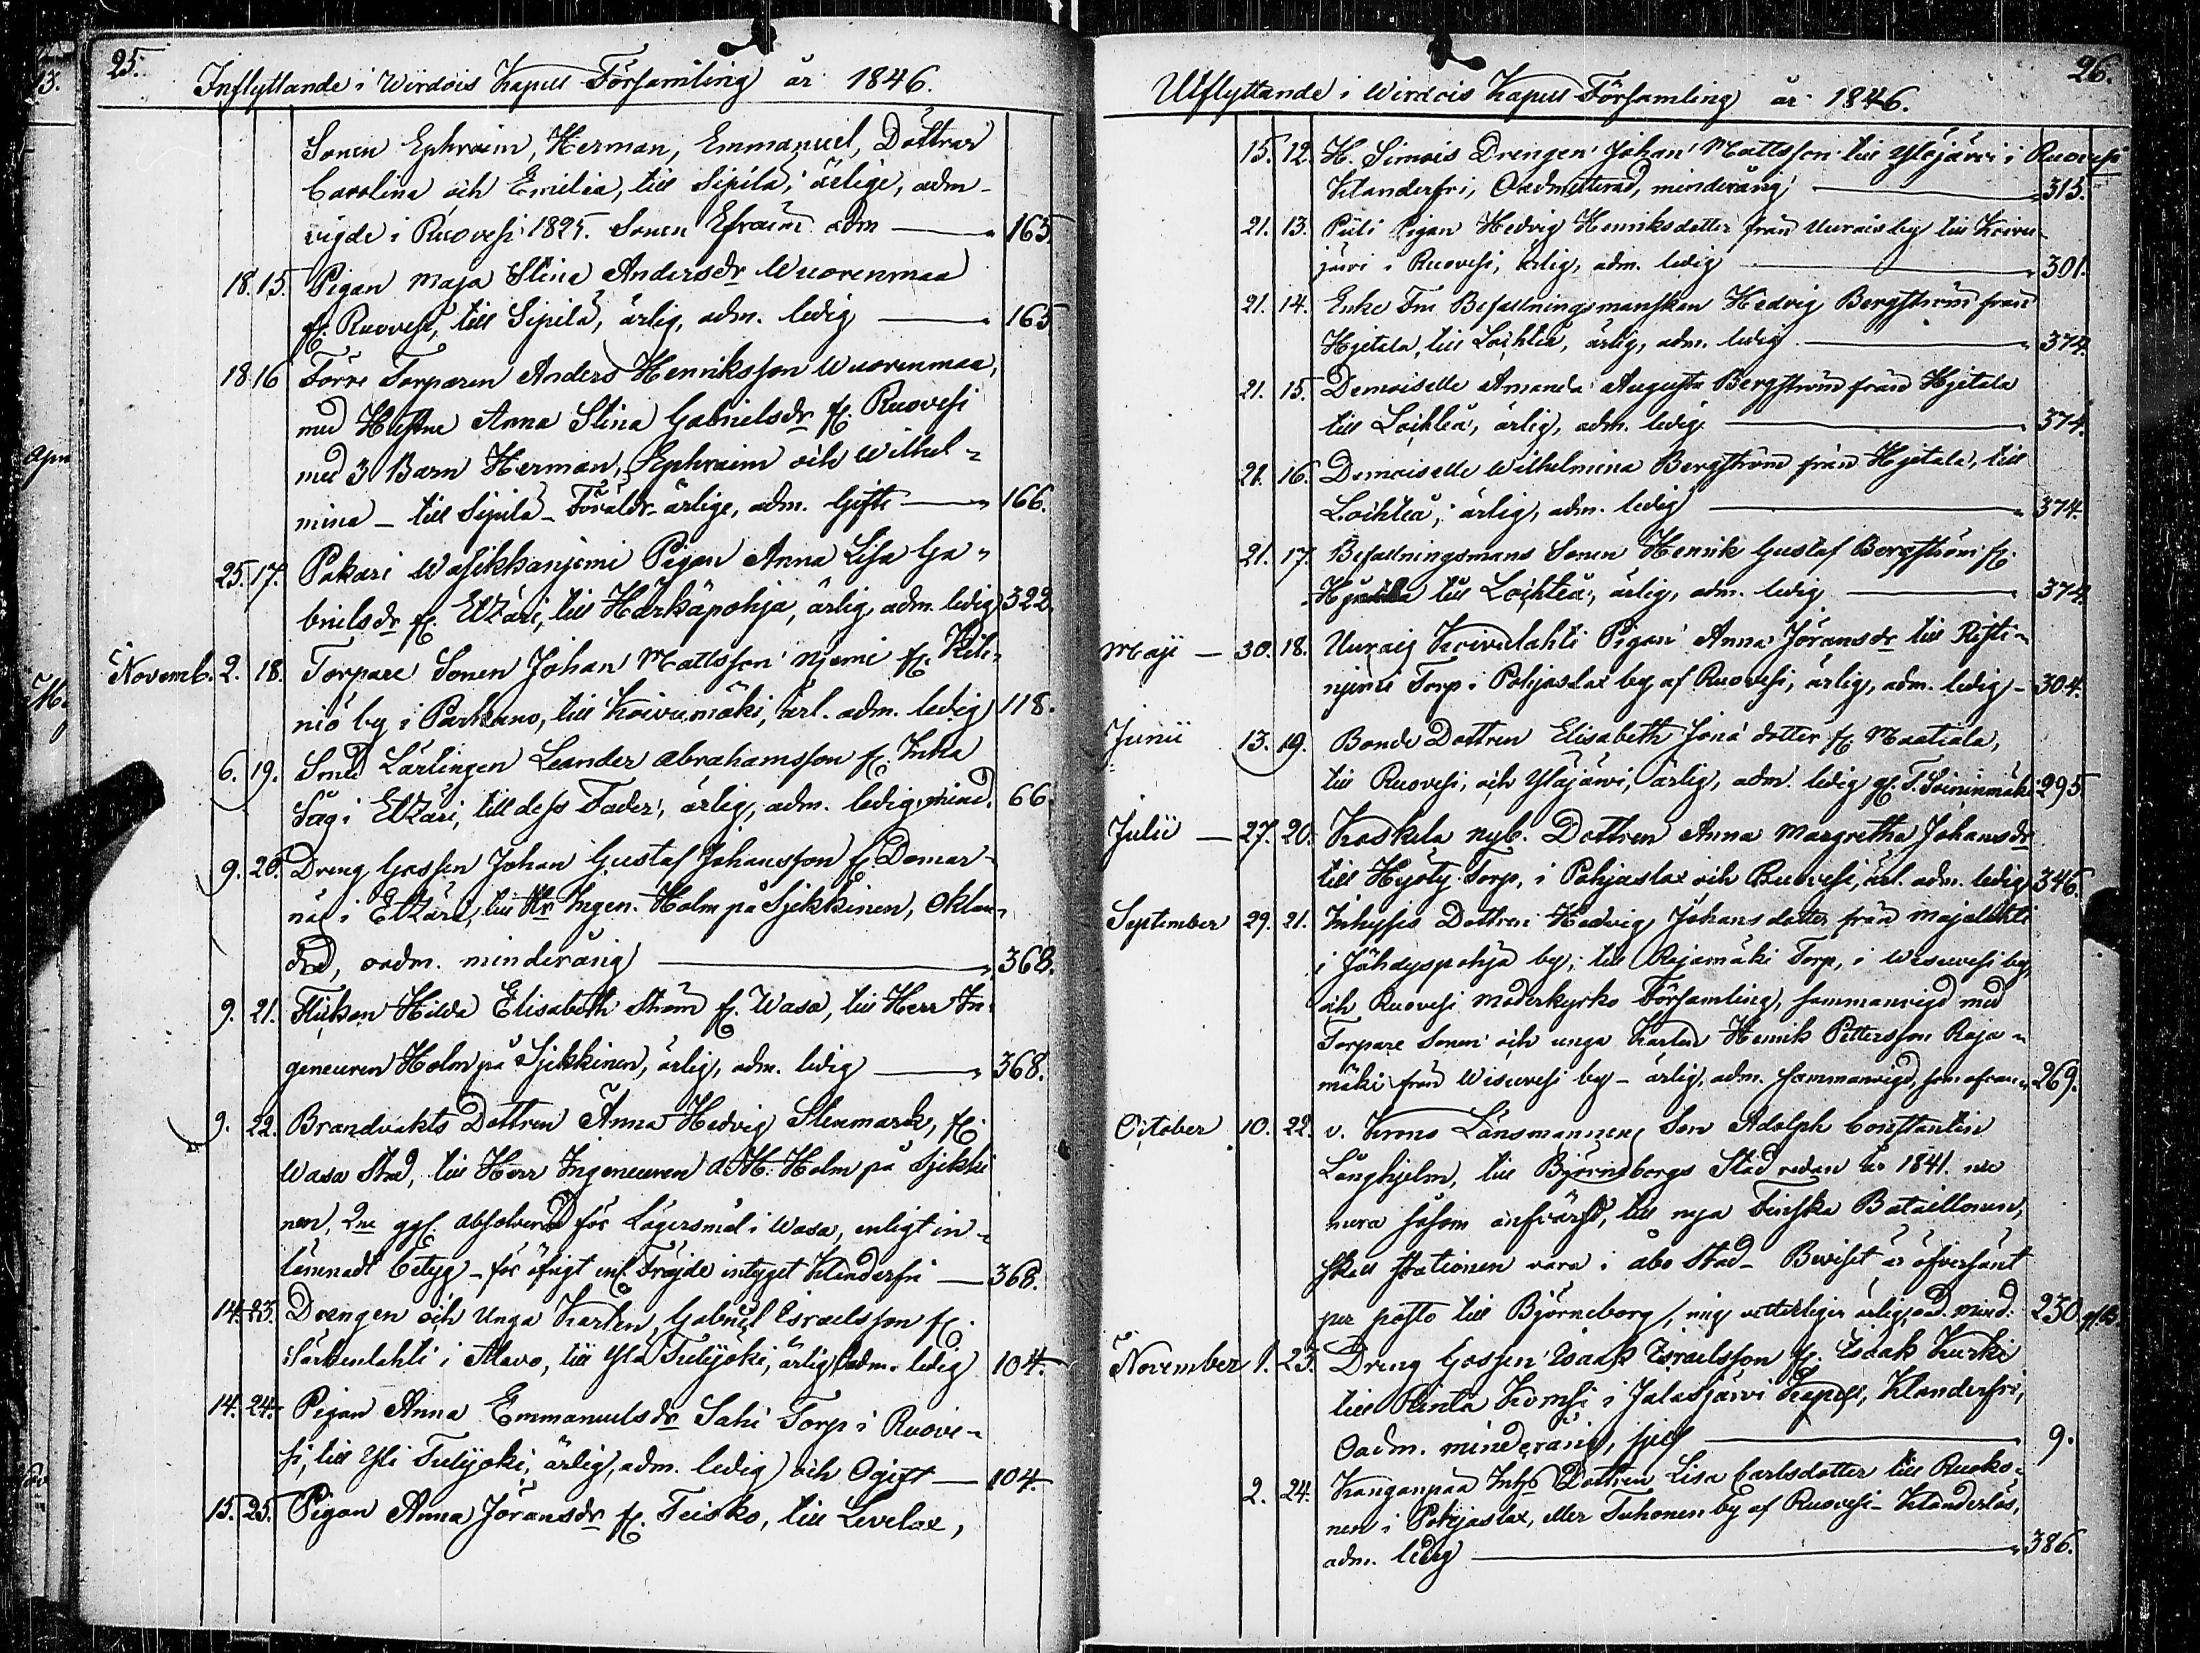 25.
Inflyttande i Wirdois Kapell Församling år 1846.
Sonen Ephraim, Herman, Emmanuel, Döttrar
Carolina och Emilia, till Sipilä, ärlige, adm-
vigde i Ruovesi 1825. Sonen Efraim adm 165
18. 15. Pigan Maja Stina Andersdr Wuorenmaa
fr. Ruovesi, till Sipilä, ärlig, adm. ledig 165
18 16 Förre Torparen Anders Henriksson Wuorenmaa,
med Hustru Anna Stina Gabrielsdr fr. Ruovesi
med 3 Barn Herman, Ephraim och Wilhel-
mina – till Sipilä – Föräldr. ärlige, adm. Gifte 166.
25. 17. Pakari Wasikkanjemi Pigan Anna Lisa Ga-
brielsdr fr. Etzäri, till Härkäpohja, ärlig, adm. ledig 322.
Novemb. 2. 18. Torpare Sonen Johan Mattsson Njemi fr. Kih-
niö by i Parkano, till Koivumäki, ärl. adm. ledig 118.
6. 19. Smed Lärlingen Leander Abrahamsson fr. Inha
Såg i Etzäri, till dess Fader, ärlig, adm. ledig, mind. 66.
9. 20. Dreng Gossen Johan Gustaf Johansson fr. Domar-
näs i Etzäri, till Hr Ingen. Holm på Sjekkinen, Oklan-
drad, oadm. minderårig 368.
9. 21. Flickan Hilda Elisabeth Ström fr. Wasa, till Herr In-
geneuren Holm på Sjekkinen, ärlig, adm. ledig 368.
9. 22. Brandvakts Dottren Anna Hedvig Stenmark, fr.
Wasa Stad, till Herr Ingeneuren A. M. Holm på Sjekki
nen, 2ne ggr. absolverad för Lägersmål i Wasa, enligt in-
lemnadt betyg – för öfrigt enl. Fräjde intyget klanderfri 368.
14. 23. Drengen och Unga Karlen Gabriel Israelsson fr.
Särkenlahti i Alavo, till Ylä Tulijoki, ärlig, adm. ledig 104.
14. 24. Pigan Anna Emmanuelsdr Sahi Torp i Ruove-
si, till Yli Tulijoki, ärlig, adm. ledig och Ogift 104.
15. 25. Pigan Anna Jöransdr fr. Teisko, till Levelax,
26.
Utflyttande i Wirdois Kapell Församling år 1846.
15. 12. H. Simois Drengen Johan Mattsson till Yläjärvi i Ruovesi
klanderfri, Oadmitterad, minderårig 315.
21. 13. Puli Pigan Hedvig Henriksdotter från Uurais by till Koivu
järvi i Ruovesi, ärlig, adm. ledig 301.
21. 14. Enke Fru Befallningsmanskan Hedvig Bergström från
Hjetala, till Loihteå, ärlig, adm. ledig 374.
21. 15. Demoiselle Amanda Augusta Bergström från Hjetala
till Loihteå, ärlig, adm. ledig 374.
21. 16. Demoiselle Wilhelmina Bergström från Hjetala, till
Loihteå, ärlig, adm. ledig 374.
21. 17. Befallningsmans Sonen Henrik Gustaf Bergström fr.
Hjetala till Loihteå, ärlig, adm. ledig 374.
Maji 30. 18. Uurais Koivulahti Pigan Anna Jöransdr till Risti-
njemi Torp i Pohjaslax by af Ruovesi, ärlig, adm. ledig 304.
Junii 13. 19. Bonde Dottren Elisabeth Jona dotter fr. Maatiala,
till Ruovesi, och Yläjärvi, ärlig, adm. ledig fr. T. Soininmäki 295
Julii 27. 20. Koskela nyb. Dottren Anna Margretha Johansdr
till Hyöty Torp, i Pohjaslax och Ruovesi, ärl. adm. ledig 346.
September 29. 21. Inhyses Dottren Hedvig Johans dotter från Majalahti
i Jähdyspohja by, till Rajamäki Torp, i Wisuvesi by,
och Ruovesi Moderkyrko Församling, sammanvigd med
Torpare Sonen och unga Karlen Henrik Pettersson Raja-
mäki från Wisuvesi by – ärlig, adm. sammanvigd, som ofvan 269.
October 10. 22. v. Krono Länsmannens Son Adolph Constantin
Långhjelm, till Björneborgs Stad redan år 1841. nu
mera såsom till nya Finska Bataillonen,
skall stationen vara i Åbo Stad – Beviset är öfversänt
per posto till Björneborg, mig vetterligen ärlig, oad. mind. 230
November 1. 23. Dreng Gossen Isaak Israelsson fr. Isaak Kurki
till Rinta Komsi i Jalasjärvi Kapell, klanderfri,
Oadm. minderårig, sjelf 9.
2. 24. Kangonpää Inhs Dottren Lisa Carlsdotter till Ruoko-
nen i Pohjaslax, eller Tuhonen by af Ruovesi – klanderlös,
adm. ledig 386.